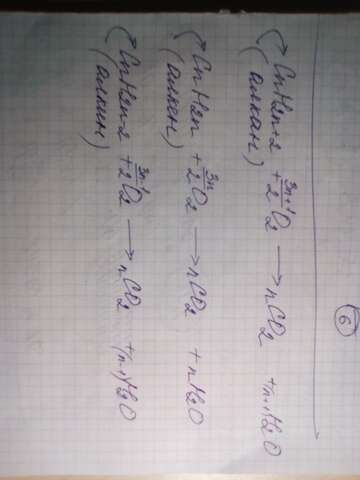 6
CnH2n+2 + 3n+1/2 O2 → nCO2 + (n+1)H2O
(алкан)
CnH2n + 3n/2 O2 → nCO2 + nH2O
(алкен)
CnH2n-2 + 3n-1/2 O2 → nCO2 + (n-1)H2O
(алкин)